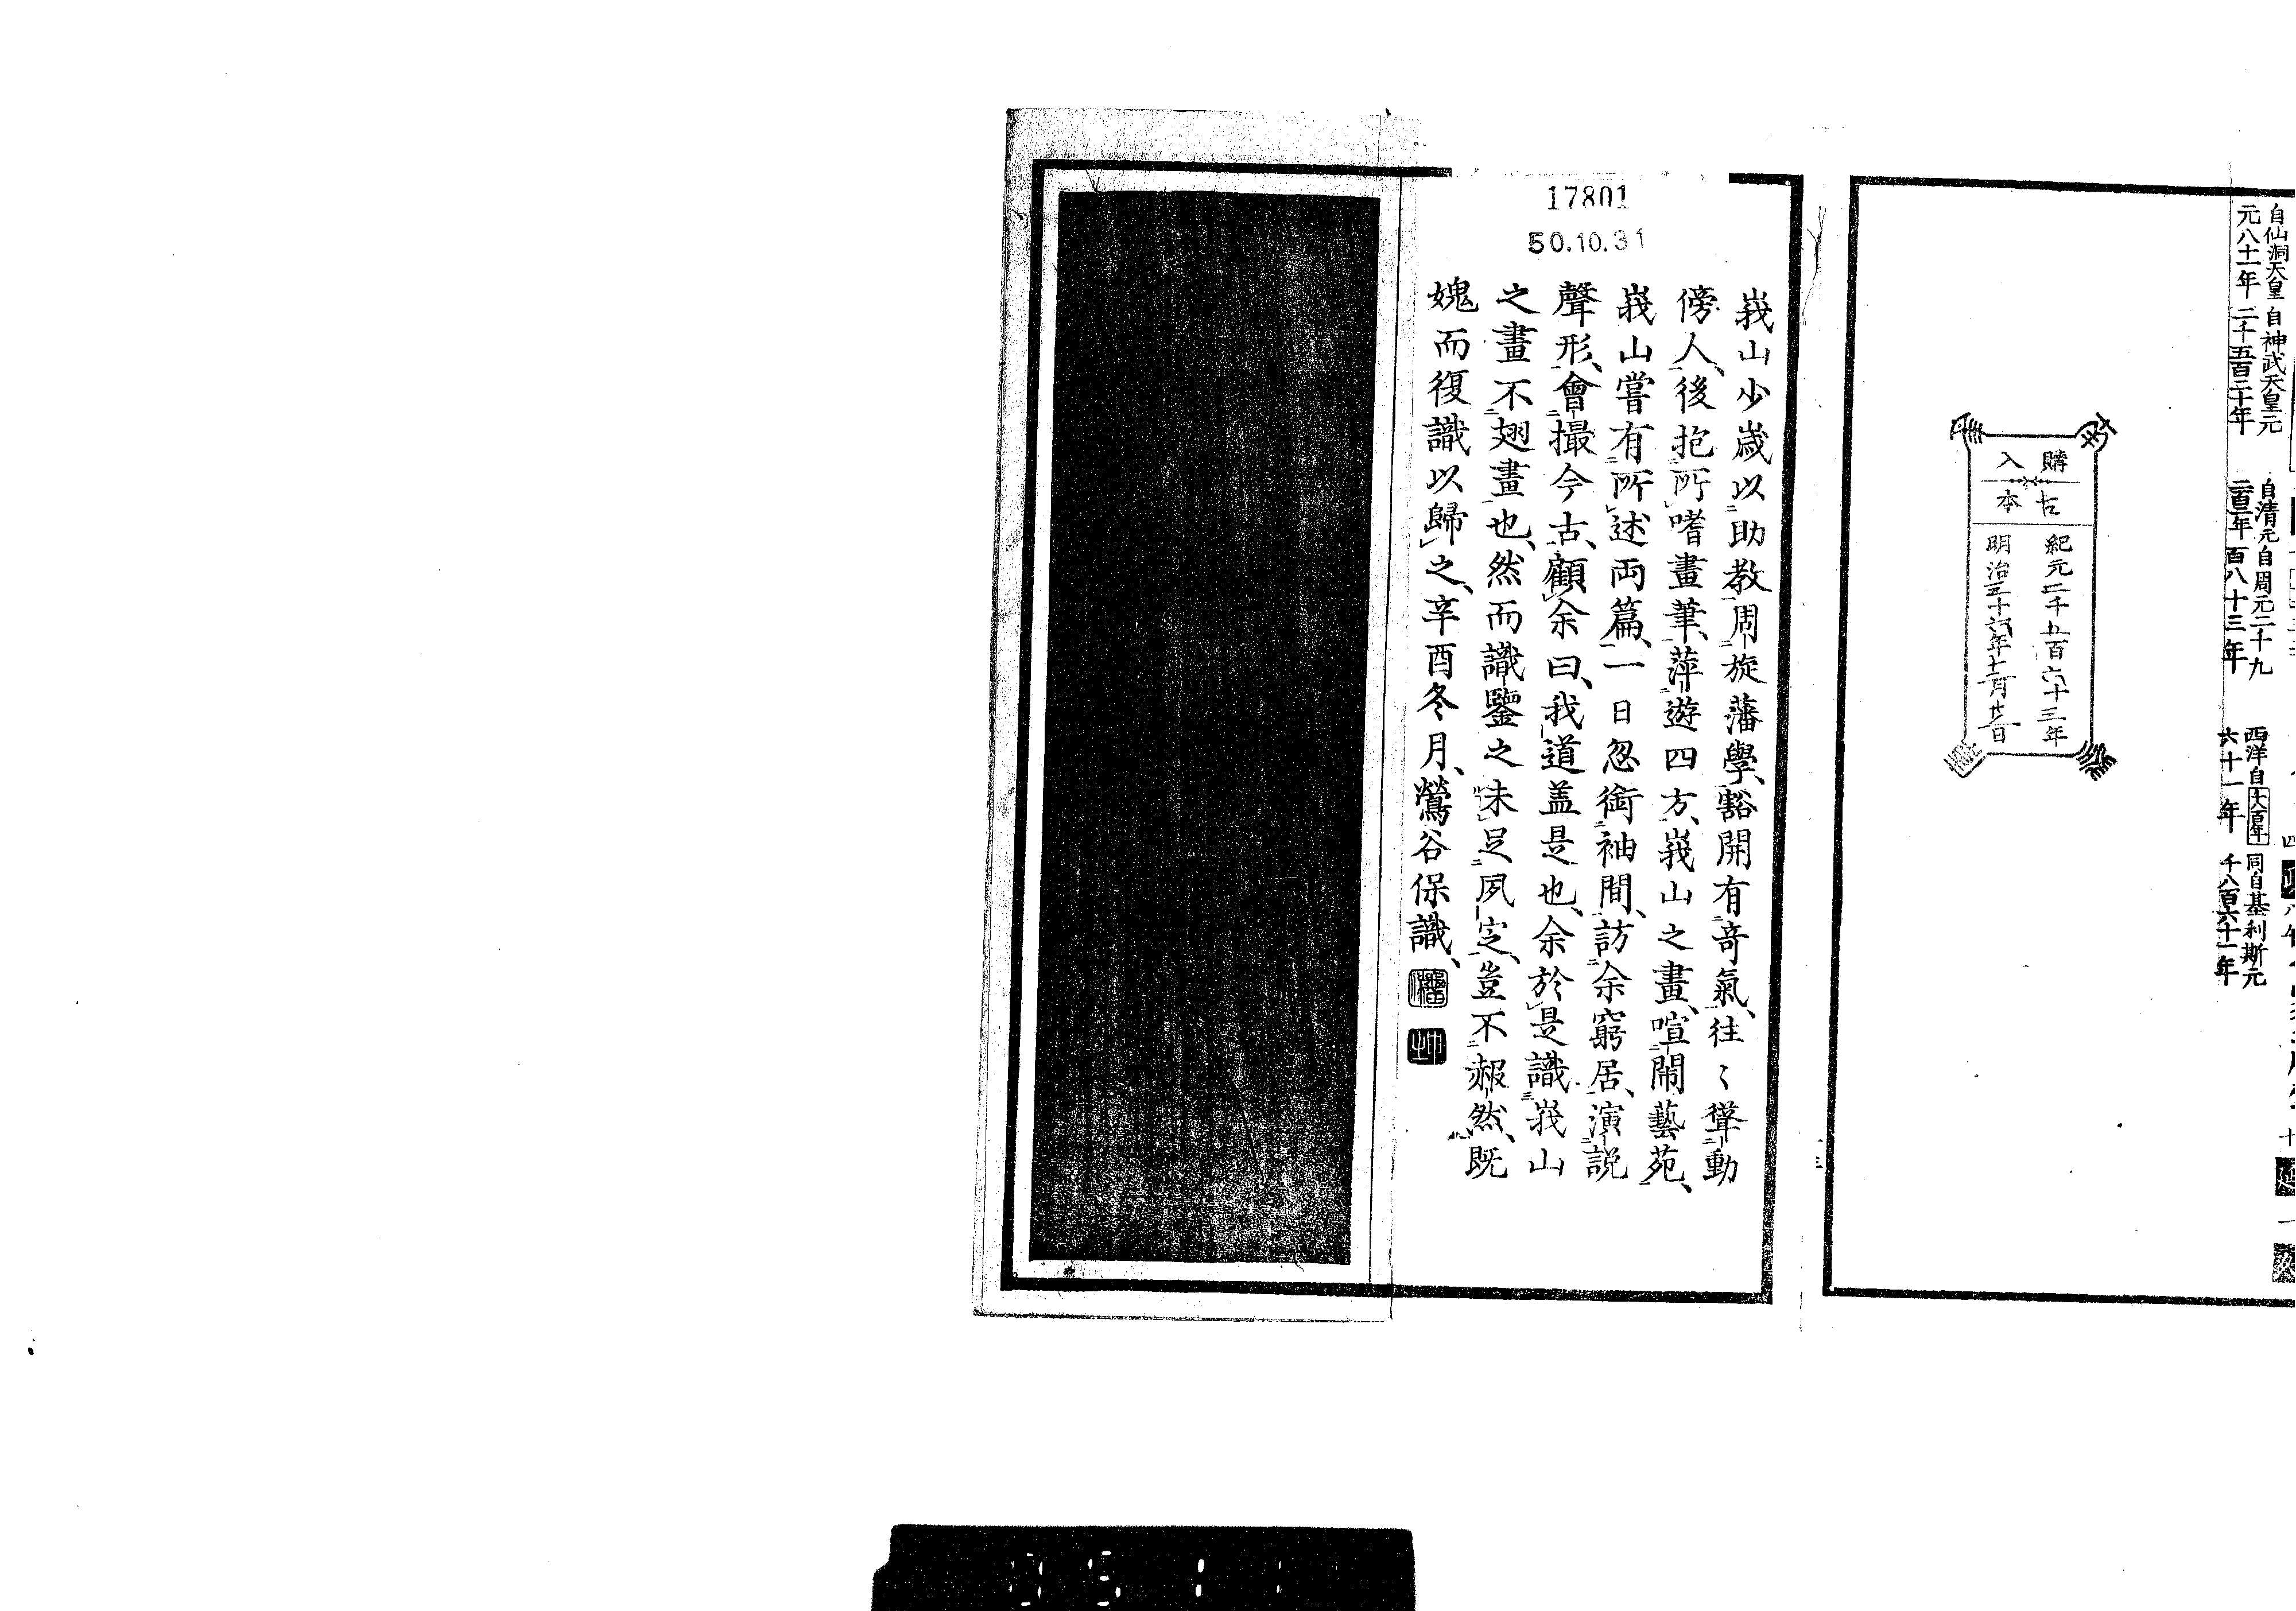 自仙洞天皇
元八十一年
自神武天皇元
二千五百二十年
自清元
自周元二千九
百八十三年
西洋自
六十一年
同自基利斯元
千八百六十一年
購入
古本
紀元二千五百六十三年
明治三十六年
17801
50.10.31
峩山少歳以助教周旋藩學、豁開有竒氣、往〻聳動
傍人、後抱所嗜畫筆、萍遊四方、峩山之畫、喧鬧藝苑、
峩山嘗有所述両篇、一日忽衒袖間、訪余窮居、演説
聲形、會撮今古、顧余曰、我道盖是也、余於是識峩山
之畫不翅畫也、然而識鑒之未足夙定、豈不赧然、既
媿而復識以歸之、辛酉冬月、鶯谷保識、